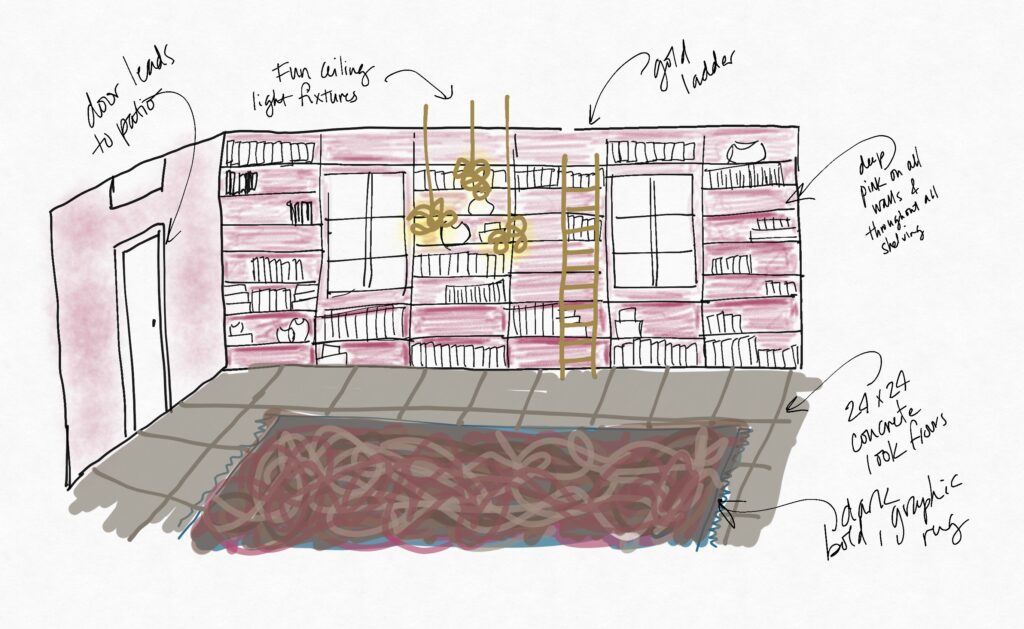 door leads
to patio
Fun ceiling
light fixtures
gold
ladder
deep
pink on all
walls &
throughout all
shelving
24 x 24
concrete
look floors
dark
bold, graphic
rug